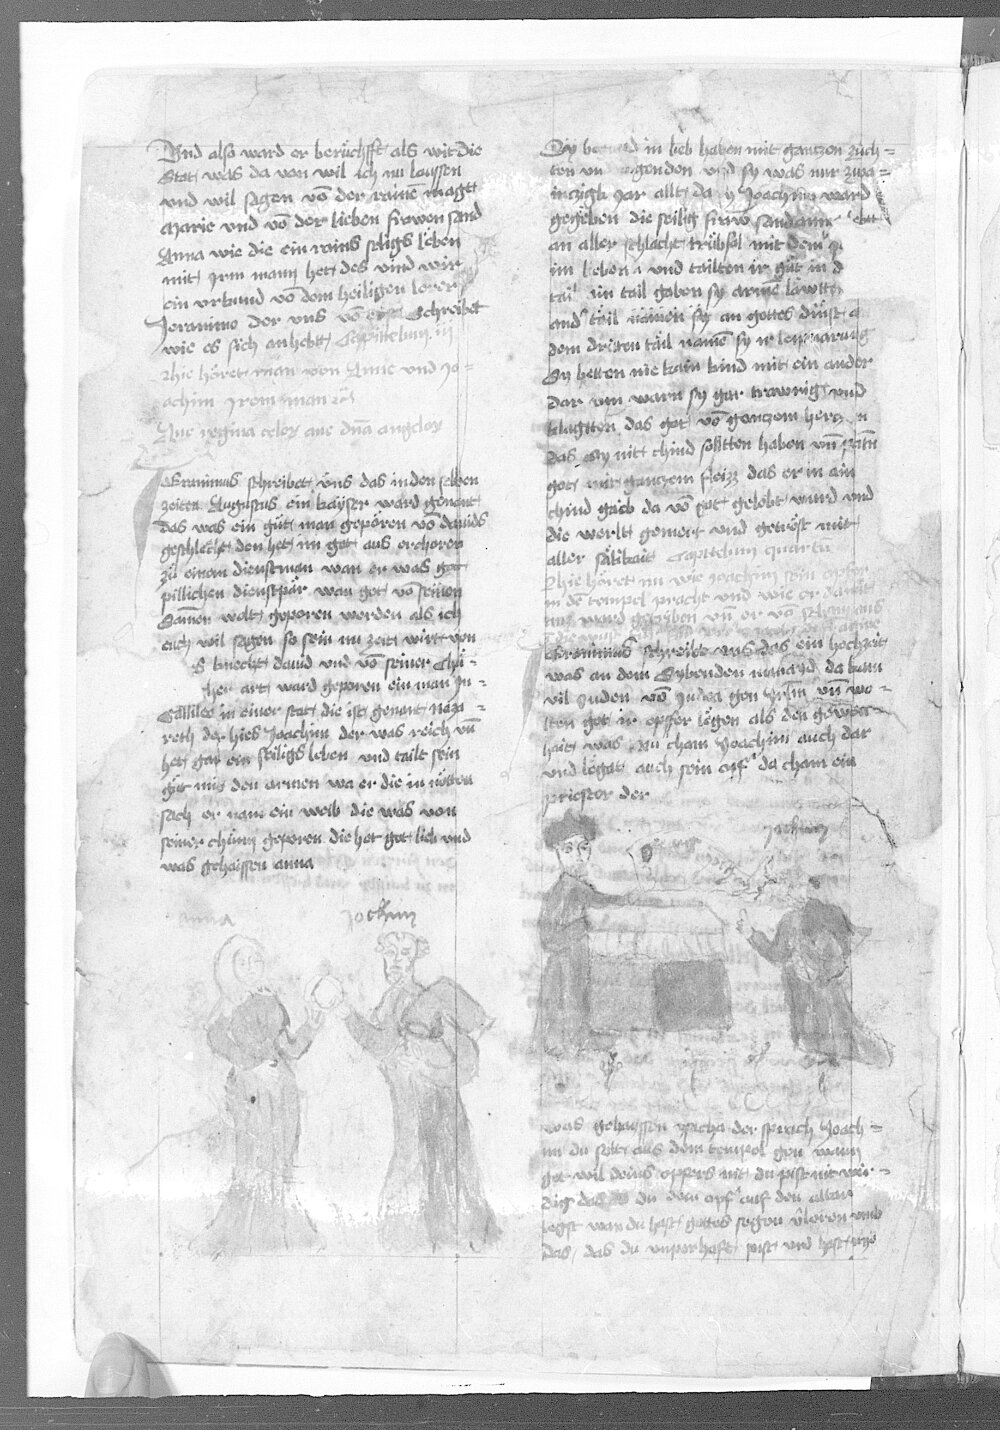 Vnd also ward er berüchfft als wit die
Stat was da von wil ich nu laussen
vnd wil sagen võ der rainẽ magtt
Marie vnd võ der lieben frawen sand
Anna wie die ein rains seligs leben
mit irm mann het des vind wir
ein vrkund võ dem heiligen lerer
Jeronimo der vns võ Schreibet
wie es sich anhebtt Capittelum iij
Hie höret man von Anne vnd Jo=
achim irem man
Aue regina celor aue dña angelor
Jeronimus schreibet vns das in den selben
zeiten Augustus ein kayser ward genent
das was ein güt man geporen võ dauids
geschlächt den het im got aus erchoren
zü einem dienstman wan er was got
pillichen dienstpär wan got võ seinem
Samen wolt geporen werden als ich
euch wil sagen so sein nu zeit wirt von
s knecht dauid vnd võ seiner chü=
her art ward geporen ein man in=
Gallilee in einer stat die ist genant naza=
reth der hies Joachim der was reich vñ
het gar ein seligs leben vnd tailt sein
güt mit den armen wa er die in nötten
sach er nam ein weib die was von
seiner chünn geporen die het got lieb vnd
was gehaissen anna
anna
Jochim
Sy in lieb haben mit gantzen züch=
ten vnd vnd sy was nur zwa=
intzigk Jar allt da Joachim ward
gegeben die selig fraw sand anna
an aller schlacht trübsal mit dem
im leben vnd tailten ir güt in d
tail ain tail gaben sy armẽ läwtten
and tail namen sy an gottes dinst
dem dritten tail namẽ sy ir lennarung
Sy hetten nie kain kind mit ein ander
dar vm warn sy gar trawrig vnd
klagtten das got võ gantzem herczen
das Sy nit chind soltten haben vñ patñ
got mit gantzem fleizz das er in ain
chind gaeb da võ got gelobt wurd vnd
die werlt gemert vnd getröst mit
aller sälikait Capittelum quartũ
Hie höret nu wie Joachim sein opfer
in dẽ tempel pracht vnd wie er dar
aus ward getriben vñ er võ
Jeronimus schreibt vns das ein hochzeit
was an dem Sybenden manayd da kam
vil Juden võ Judea gen Jrlm vñ wo=
lten got ir opffer legen als den gewon=
hait was Nu cham Joachim auch dar
vnd leget auch sein opf da cham ein
priester der
jochim
was gehayssen ysacha der sprach Joach=
im du solt aus dem tempel gen wann
got wil deins opfers nit du pist nit wir=
dig das du dein opf auf den altar
legst wan du hast gottes segen vloren vmb
das das du vnperhaft pist vnd hast